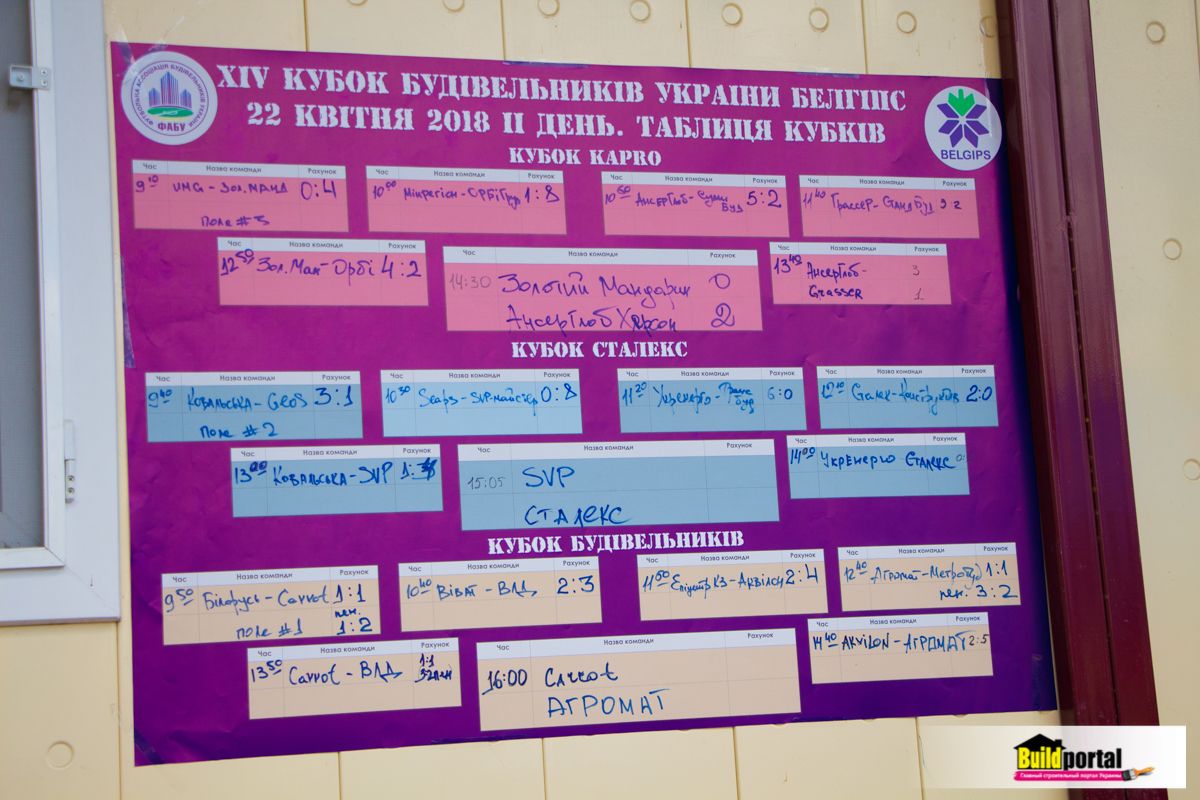 ФУТБОЛЬНА АСОЦІАЦІЯ БУДІВЕЛЬНИКІВ УКРАЇНИ
ФАБУ
XIV КУБОК БУДІВЕЛЬНИКІВ УКРАЇНИ БЕЛГІПС
22 КВІТНЯ 2018 II ДЕНЬ. ТАБЛИЦЯ КУБКІВ
BELGIPS
КУБОК KAPRO
Час Назва команди Рахунок
9 10 UMG - Зол.МАНД 0:4
поле #3
Час Назва команди Рахунок
10 00 Мінрегіон - Орбі 1:8
Час Назва команди Рахунок
10 50 АнсерГлоб - 5:2
Буд
Час Назва команди Рахунок
11 40 Грассер - СтандБуд 2
Час Назва команди Рахунок
12 50 Зол.Ман - Орбі 4:2
Час Назва команди Рахунок
14:30 Золотий Мандарин 0
АнсерГлоб Херсон 2
Час Назва команди Рахунок
13 40 АнсерГлоб - 3
Grasser 1
КУБОК СТАЛЕКС
Час Назва команди Рахунок
9 40 Ковальська - Geos 3:1
поле #2
Час Назва команди Рахунок
10 30 - SVP-майстер 0:8
Час Назва команди Рахунок
11 20 Укренерго - Транс 6:0
буд
Час Назва команди Рахунок
12 10 Сталек - 2:0
Час Назва команди Рахунок
13 00 Ковальська - SVP 1:
Час Назва команди Рахунок
15:05 SVP
СТАЛЕКС
Час Назва команди Рахунок
14 00 Укренерго Сталекс 0:
КУБОК БУДІВЕЛЬНИКІВ
Час Назва команди Рахунок
9 50 Білорусь - Carrot 1:1
пен.
поле #1 1:2
Час Назва команди Рахунок
10 40 Віват - ВЛД 2:3
Час Назва команди Рахунок
11 50 Епіцентр КЗ - Аквілон 2:4
Час Назва команди Рахунок
12 40 Агромат - Метробуд 1:1
пен. 3:2
Час Назва команди Рахунок
13 50 Carrot - ВЛД 1:1
Час Назва команди Рахунок
16:00 Carrot
АГРОМАТ
Час Назва команди Рахунок
14 40 AKVILON - АГРОМАТ 2:5
Buildportal
Главный строительный портал Украины